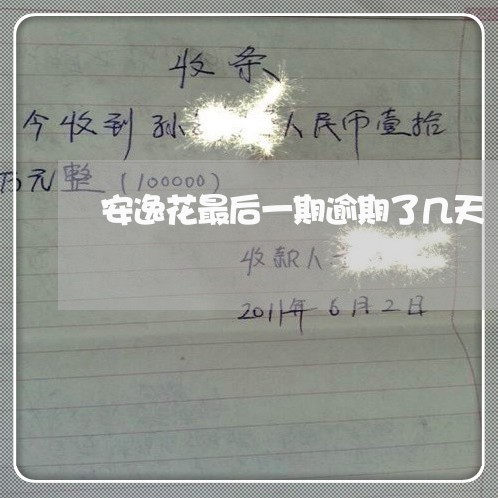 收条
今收到孙 人民币壹拾
万元整（100000）
安逸花最后一期逾期了几天
收款人
2011年6月2日